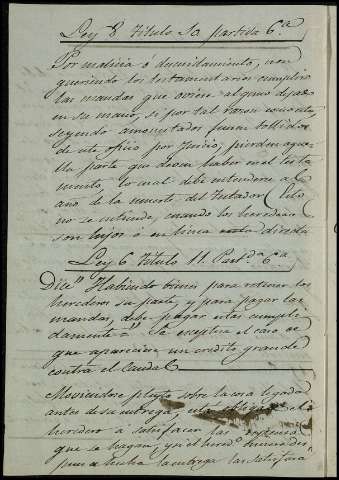 Ley 8 Titulo 10 partida 6.ª
Por malicia ó descuidamiento, non
queriendo los testamentarios cumplir
las mandas que oviere alguno dejado
en su mano, si por tal razon como esta,
seyendo amonestados fuesen tollidos
de este oficio por Juicio, pierdan aque
lla parte que deven haber en el testa
mento, lo cual debe entenderse al
año de la muerte del Testador. Esto
no se entiende, cuando los herederos
son hijos ó en linea recta
Ley 6 Titulo 11. Part.da 6.ª
Dice "Habiendo bienes para retener los
herederos su parte, y para pagar las
mandas, debe pagar estas cumpli
damente" Se exceptua el caso de
que apareciere un credito grande
contra el caudal
Moviendose pleyto sobre la cosa legada
antes de su entrega, está obligado el
heredero á satisfacer las espensas
que se hagan, y si el hered.o
pues de hecha la entrega las satisfará